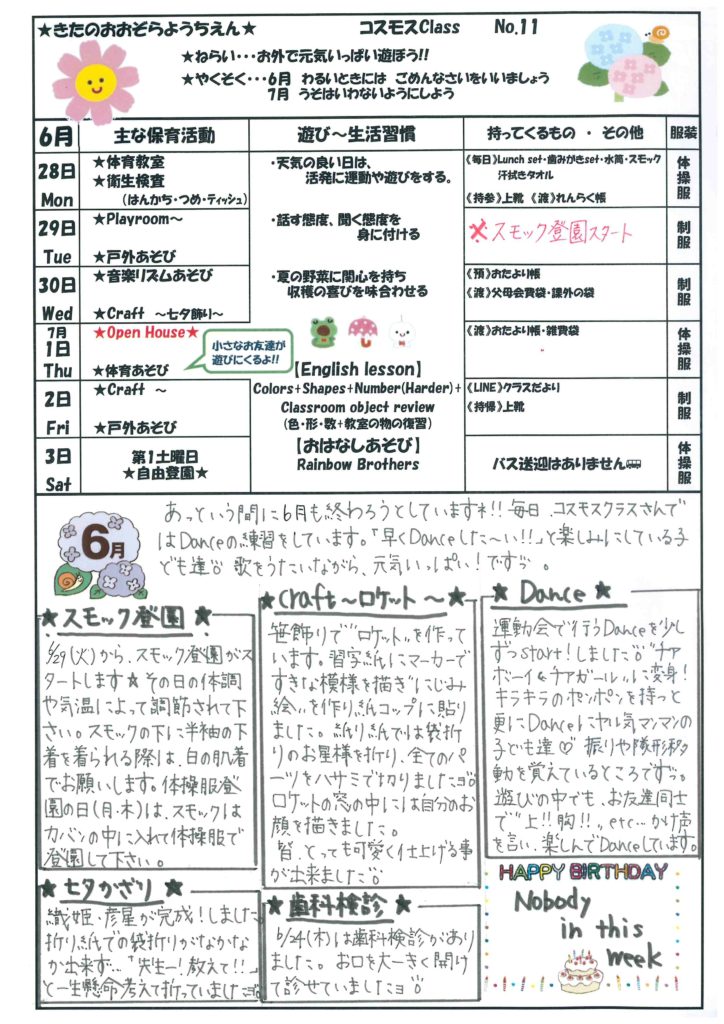 ★きたのおおぞらようちえん★ コスモスClass No.11
★ねらい・・・お外で元気いっぱい遊ぼう!!
★やくそく・・・6月 わるいときには ごめんなさいをいいましょう
7月 うそはいわないようにしよう
6月 主な保育活動 遊び～生活習慣 持ってくるもの ・ その他 服装
28日 Mon
★体育教室
★衛生検査
(はんかち・つめ・ティッシュ)
・天気の良い日は、
活発に運動や遊びをする。
《毎日》Lunch set・歯みがきset・水筒・スモック
汗拭きタオル
《持参》上靴 《渡》れんらく帳
体操服
29日 Tue
★Playroom～
★戸外あそび
・話す態度、聞く態度を
身に付ける
スモック登園スタート
制服
30日 Wed
★音楽リズムあそび
★Craft ～七夕飾り～
・夏の野菜に関心を持ち
収穫の喜びを味合わせる
《預》おたより帳
《渡》父母会費袋・課外の袋
制服
7月 1日 Thu
★Open House★
★体育あそび
小さなお友達が
遊びにくるよ!!
《渡》おたより帳・雑費袋
体操服
【English lesson】
Colors+Shapes+Number(Harder)+
Classroom object review
(色・形・数+教室の物の復習)
【おはなしあそび】
Rainbow Brothers
2日 Fri
★Craft ～
★戸外あそび
《LINE》クラスだより
《持帰》上靴
制服
3日 Sat
第1土曜日
★自由登園★
バス送迎はありません
体操服
6月
あっという間に6月も終わろうとしていますネ!!毎日、コスモスクラスさんで
はDanceの練習をしています。「早くDanceした～い!!」と楽しみにしている子
ども達 歌をうたいながら、元気いっぱい!です。
★スモック登園★
6/29(火)から、スモック登園がス
タートします★その日の体調
や気温によって調節されて下
さい。スモックの下に半袖の下
着を着られる際は、白の肌着
でお願いします。体操服登
園の日(月・木)は、スモックは
カバンの中に入れて体操服で
登園して下さい。
★Craft～ロケット～★
笹飾りで"ロケット"を作って
います。習字紙にマーカーで
すきな模様を描き"にじみ
絵"を作り紙コップに貼り
ました。折り紙では袋折
りのお星様を折り、全てのパ
ーツをハサミで切りましたヨ
ロケットの窓の中には自分のお
顔を描きました。
皆、とっても可愛く仕上げる事
が出来ました
★Dance★
運動会で行うDanceを少し
ずつstart!しました "チア
ボーイ&チアガール"に変身!
キラキラのポンポンを持つと
更にDanceにヤル気マンマンの
子ども達♡ 振りや隊形移
動を覚えているところです。
遊びの中でも、お友達同士
で"上!!胸!!"etc…かけ声
を言い、楽しんでDanceしています。
★七夕かざり★
織姫・彦星が完成!しました
折り紙での袋折りがなかなか
か出来ず…「先生ー!教えて!!」
と一生懸命考えて折っていましたヨ
★歯科検診★
6/24(木)は歯科検診があり
ました。お口を大ーきく開け
て診せていましたヨ
HAPPY BIRTHDAY
Nobody
in this
week